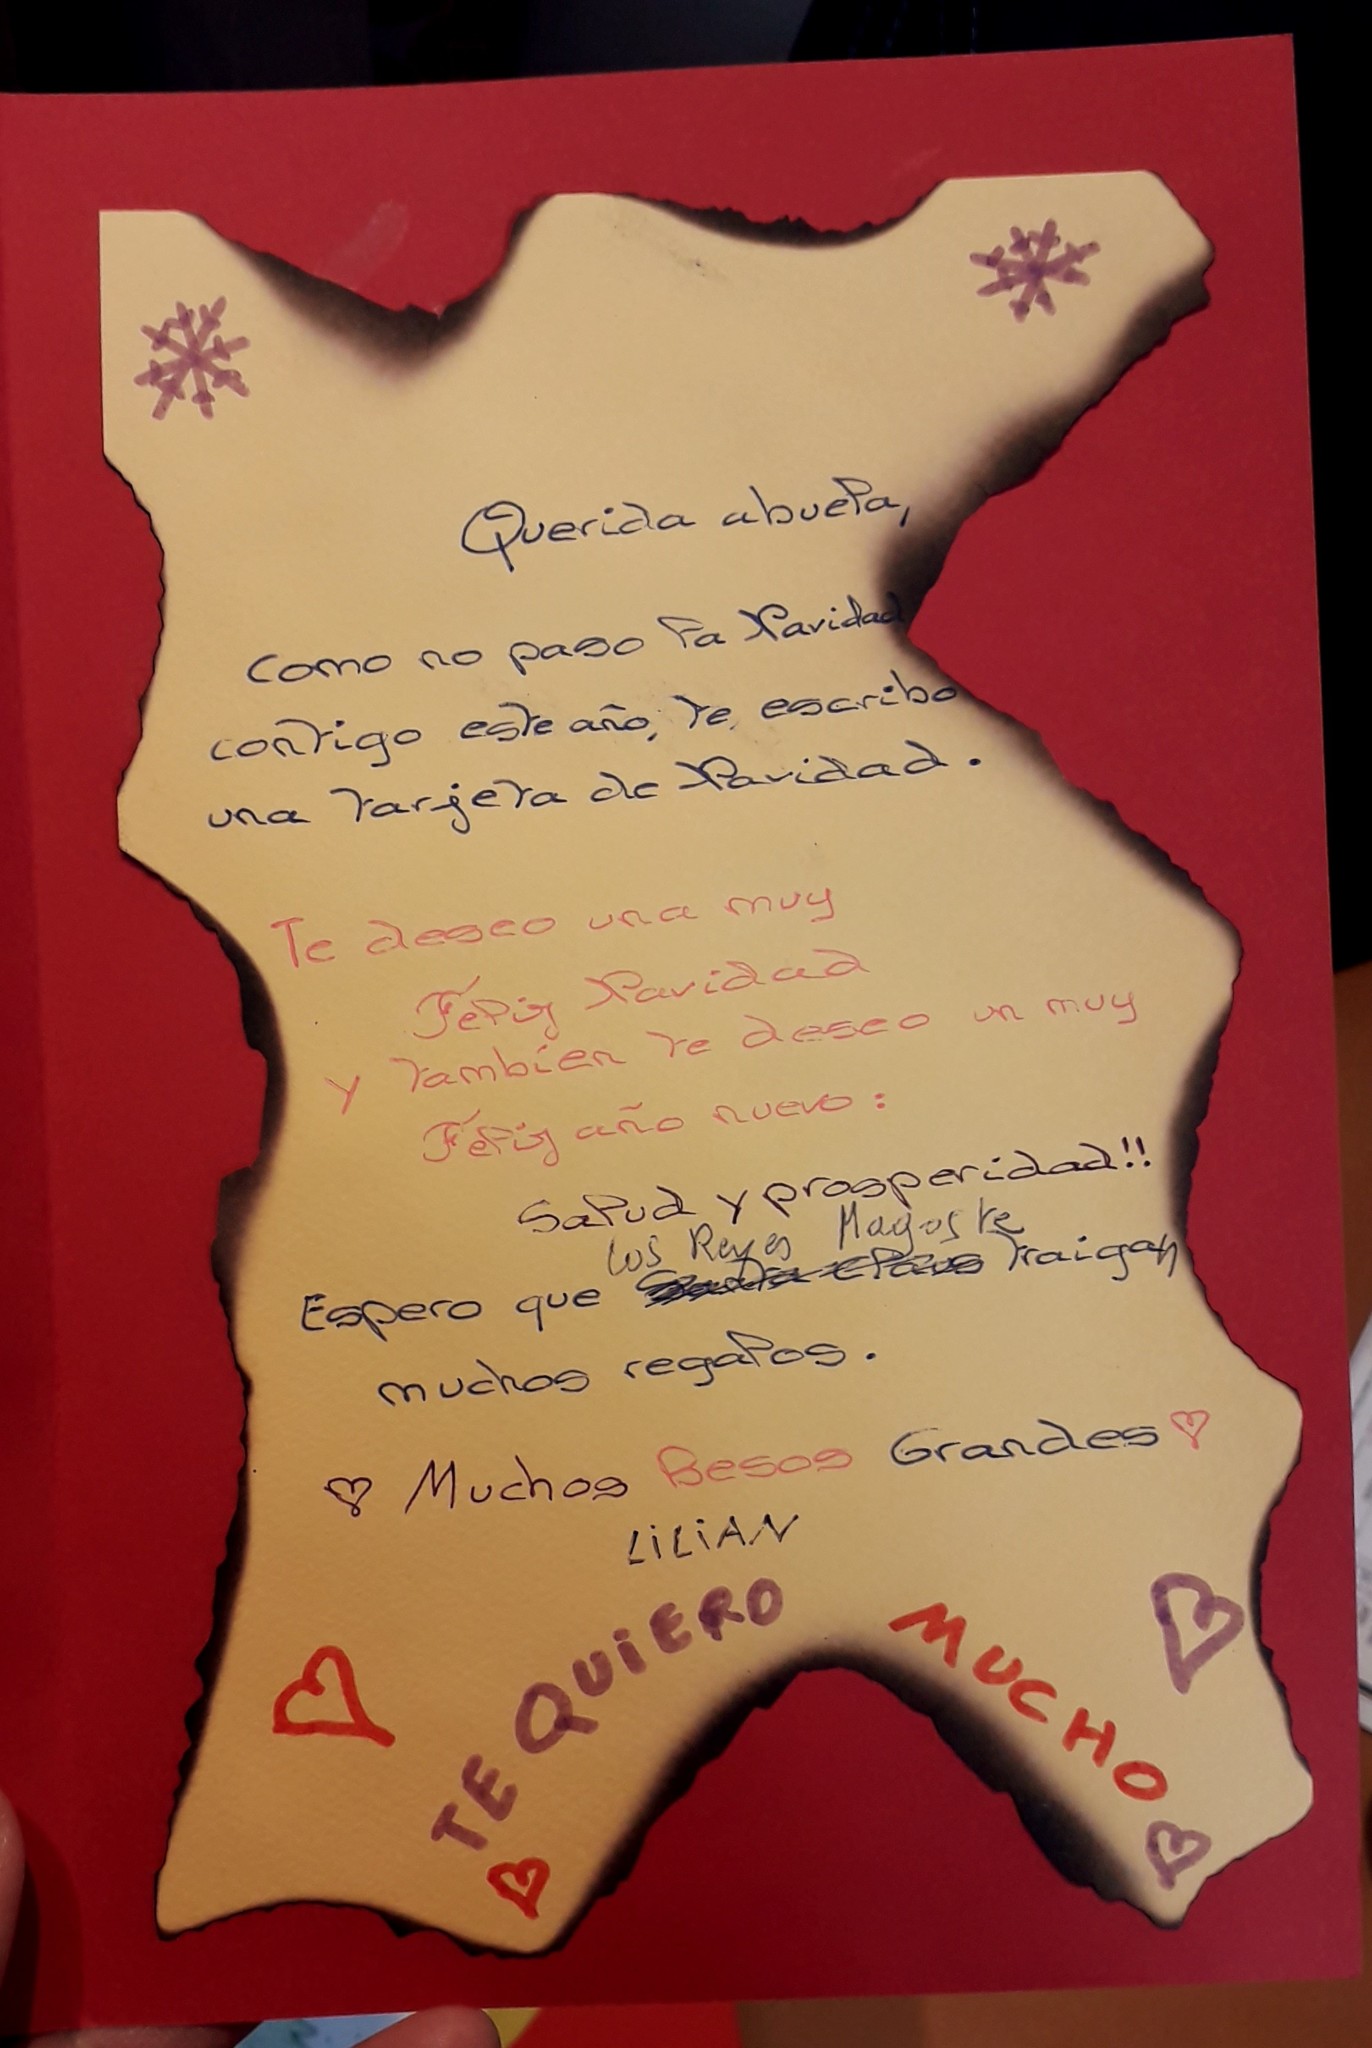 Querida abuela,
Como no paso la Navidad
contigo este año, te escribo
una tarjeta de Navidad.
Te deseo una muy
Feliz Navidad
y tambien te deseo un muy
Feliz año nuevo:
Salud y prosperidad!!
los Reyes Magos te
Espero que Santa Claus traigan
muchos regalos.
Muchos Besos Grandes
LILIAN
TE QUIERO MUCHO